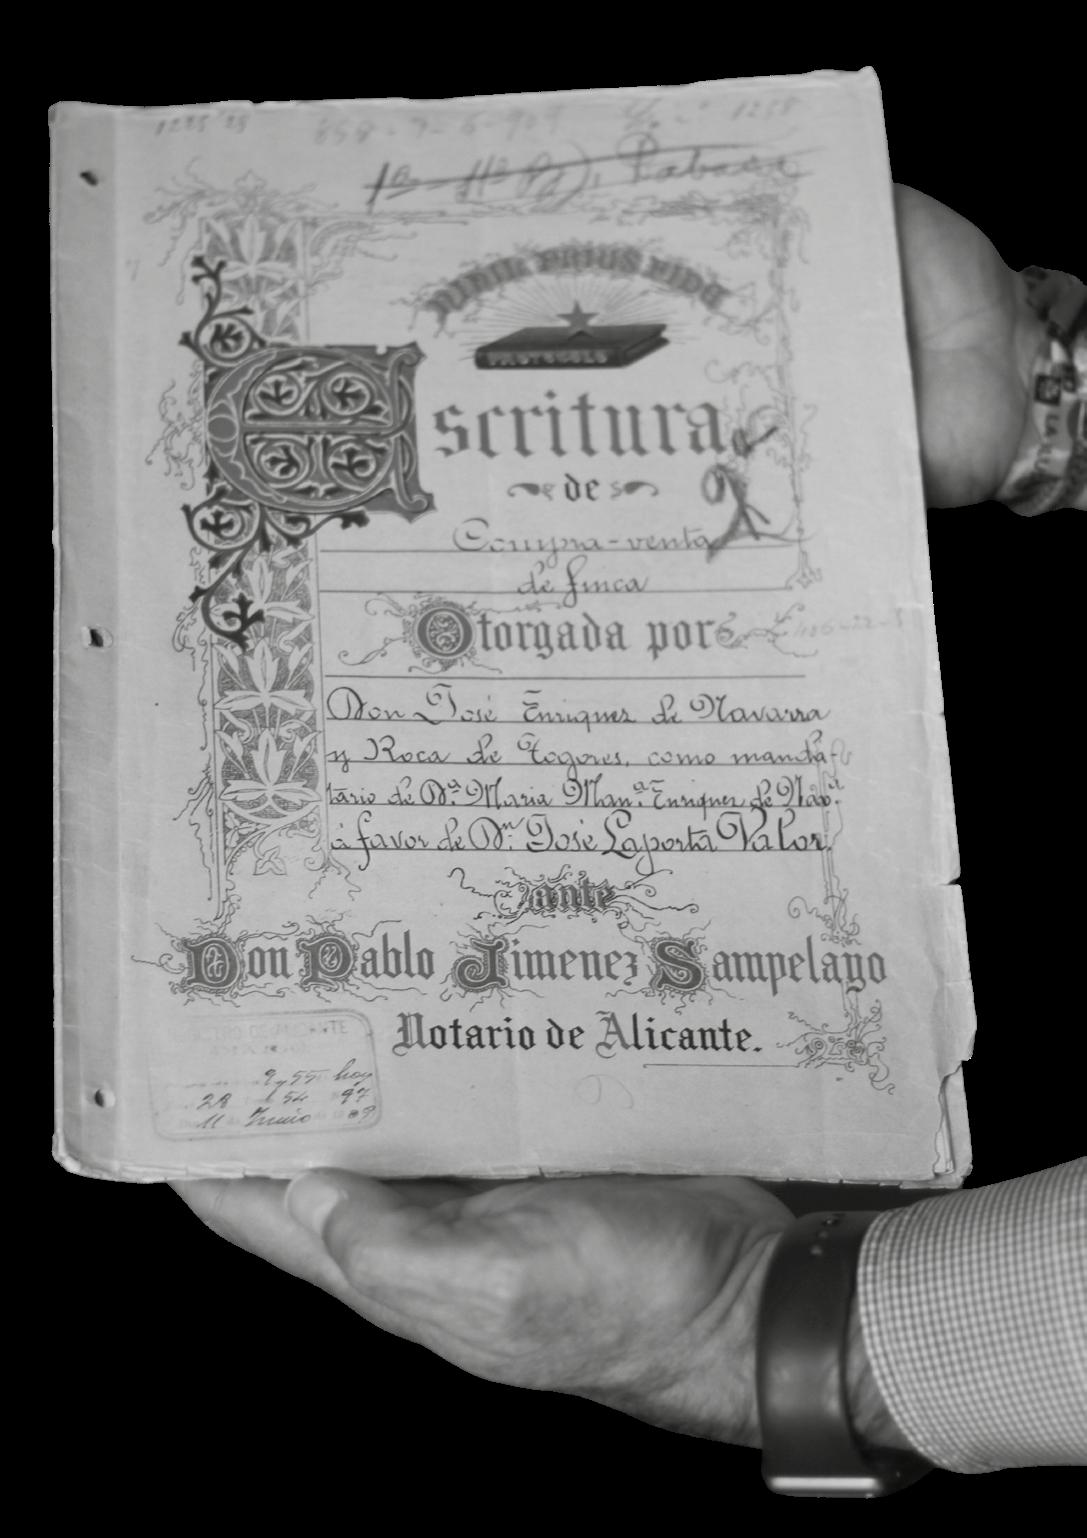 1258
NIHIL PRIUS FIDE
PROTOCOLO
Escritura
de
Compra-venta
de finca
Otorgada por
Don José Enriquez de Navarra
y Roca de Togores, como manda-
tario de Dª. Maria Manª. Enriquez de Navª.
á favor de Dⁿ. José Laporta Valor.
ante
Don Pablo Jimenez Sampelayo
Notario de Alicante.
9 y 55 hoy
28 54 97
11 Junio 09